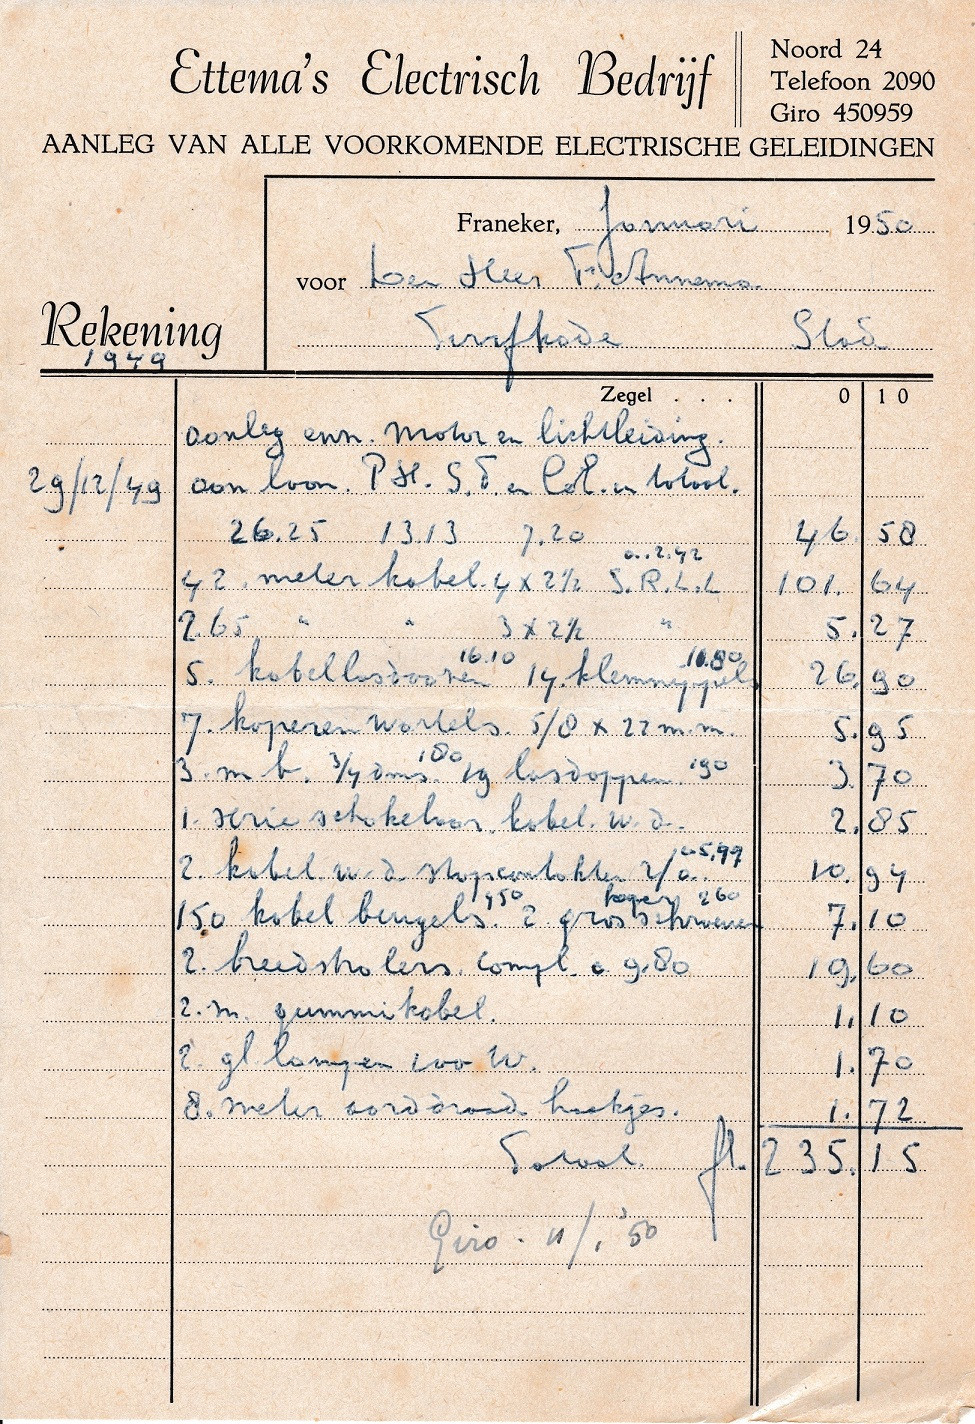 Ettema's Electrisch Bedrijf
Noord 24
Telefoon 2090
Giro 450959
AANLEG VAN ALLE VOORKOMENDE ELECTRISCHE GELEIDINGEN
Franeker, Januari 1950
voor den Heer Annema.
Turfkade Stad
Rekening
1949
Zegel . . . 0 10
aanleg enn. motor en lichtleiding.
29/12/49 aan loon. P.H. S.T. en totaal.
26.25 13.13 7.20 46.58
a. 2.42
42. meter kabel. 4 x 2½ S.R.L.L 101.64
2.65 " " 3 x 2½ " 5.27
16.10 10.80
5. kabellasdoozen 14. klemnippels 26.90
7. koperen wartels. 5/8 x 22 m.m. 5.95
180 190
3. m b. 3/4 dms. 19 lasdoppen 3.70
1. serie schakelaar. kabel. w.d. 2.85
a 5.47
2. kabel w.d. stopcontakten 2/a. 10.94
450 koper 260
150 kabel beugels. 2 gros schroeven 7.10
2. breedstralers. compl. a 9.80 19.60
2. m. gummikabel. 1.10
2. gl lampen 100 W. 1.70
8. meter aarddraad haakjes. 1.72
Totaal. fl. 235.15
Giro. 11/1 '50